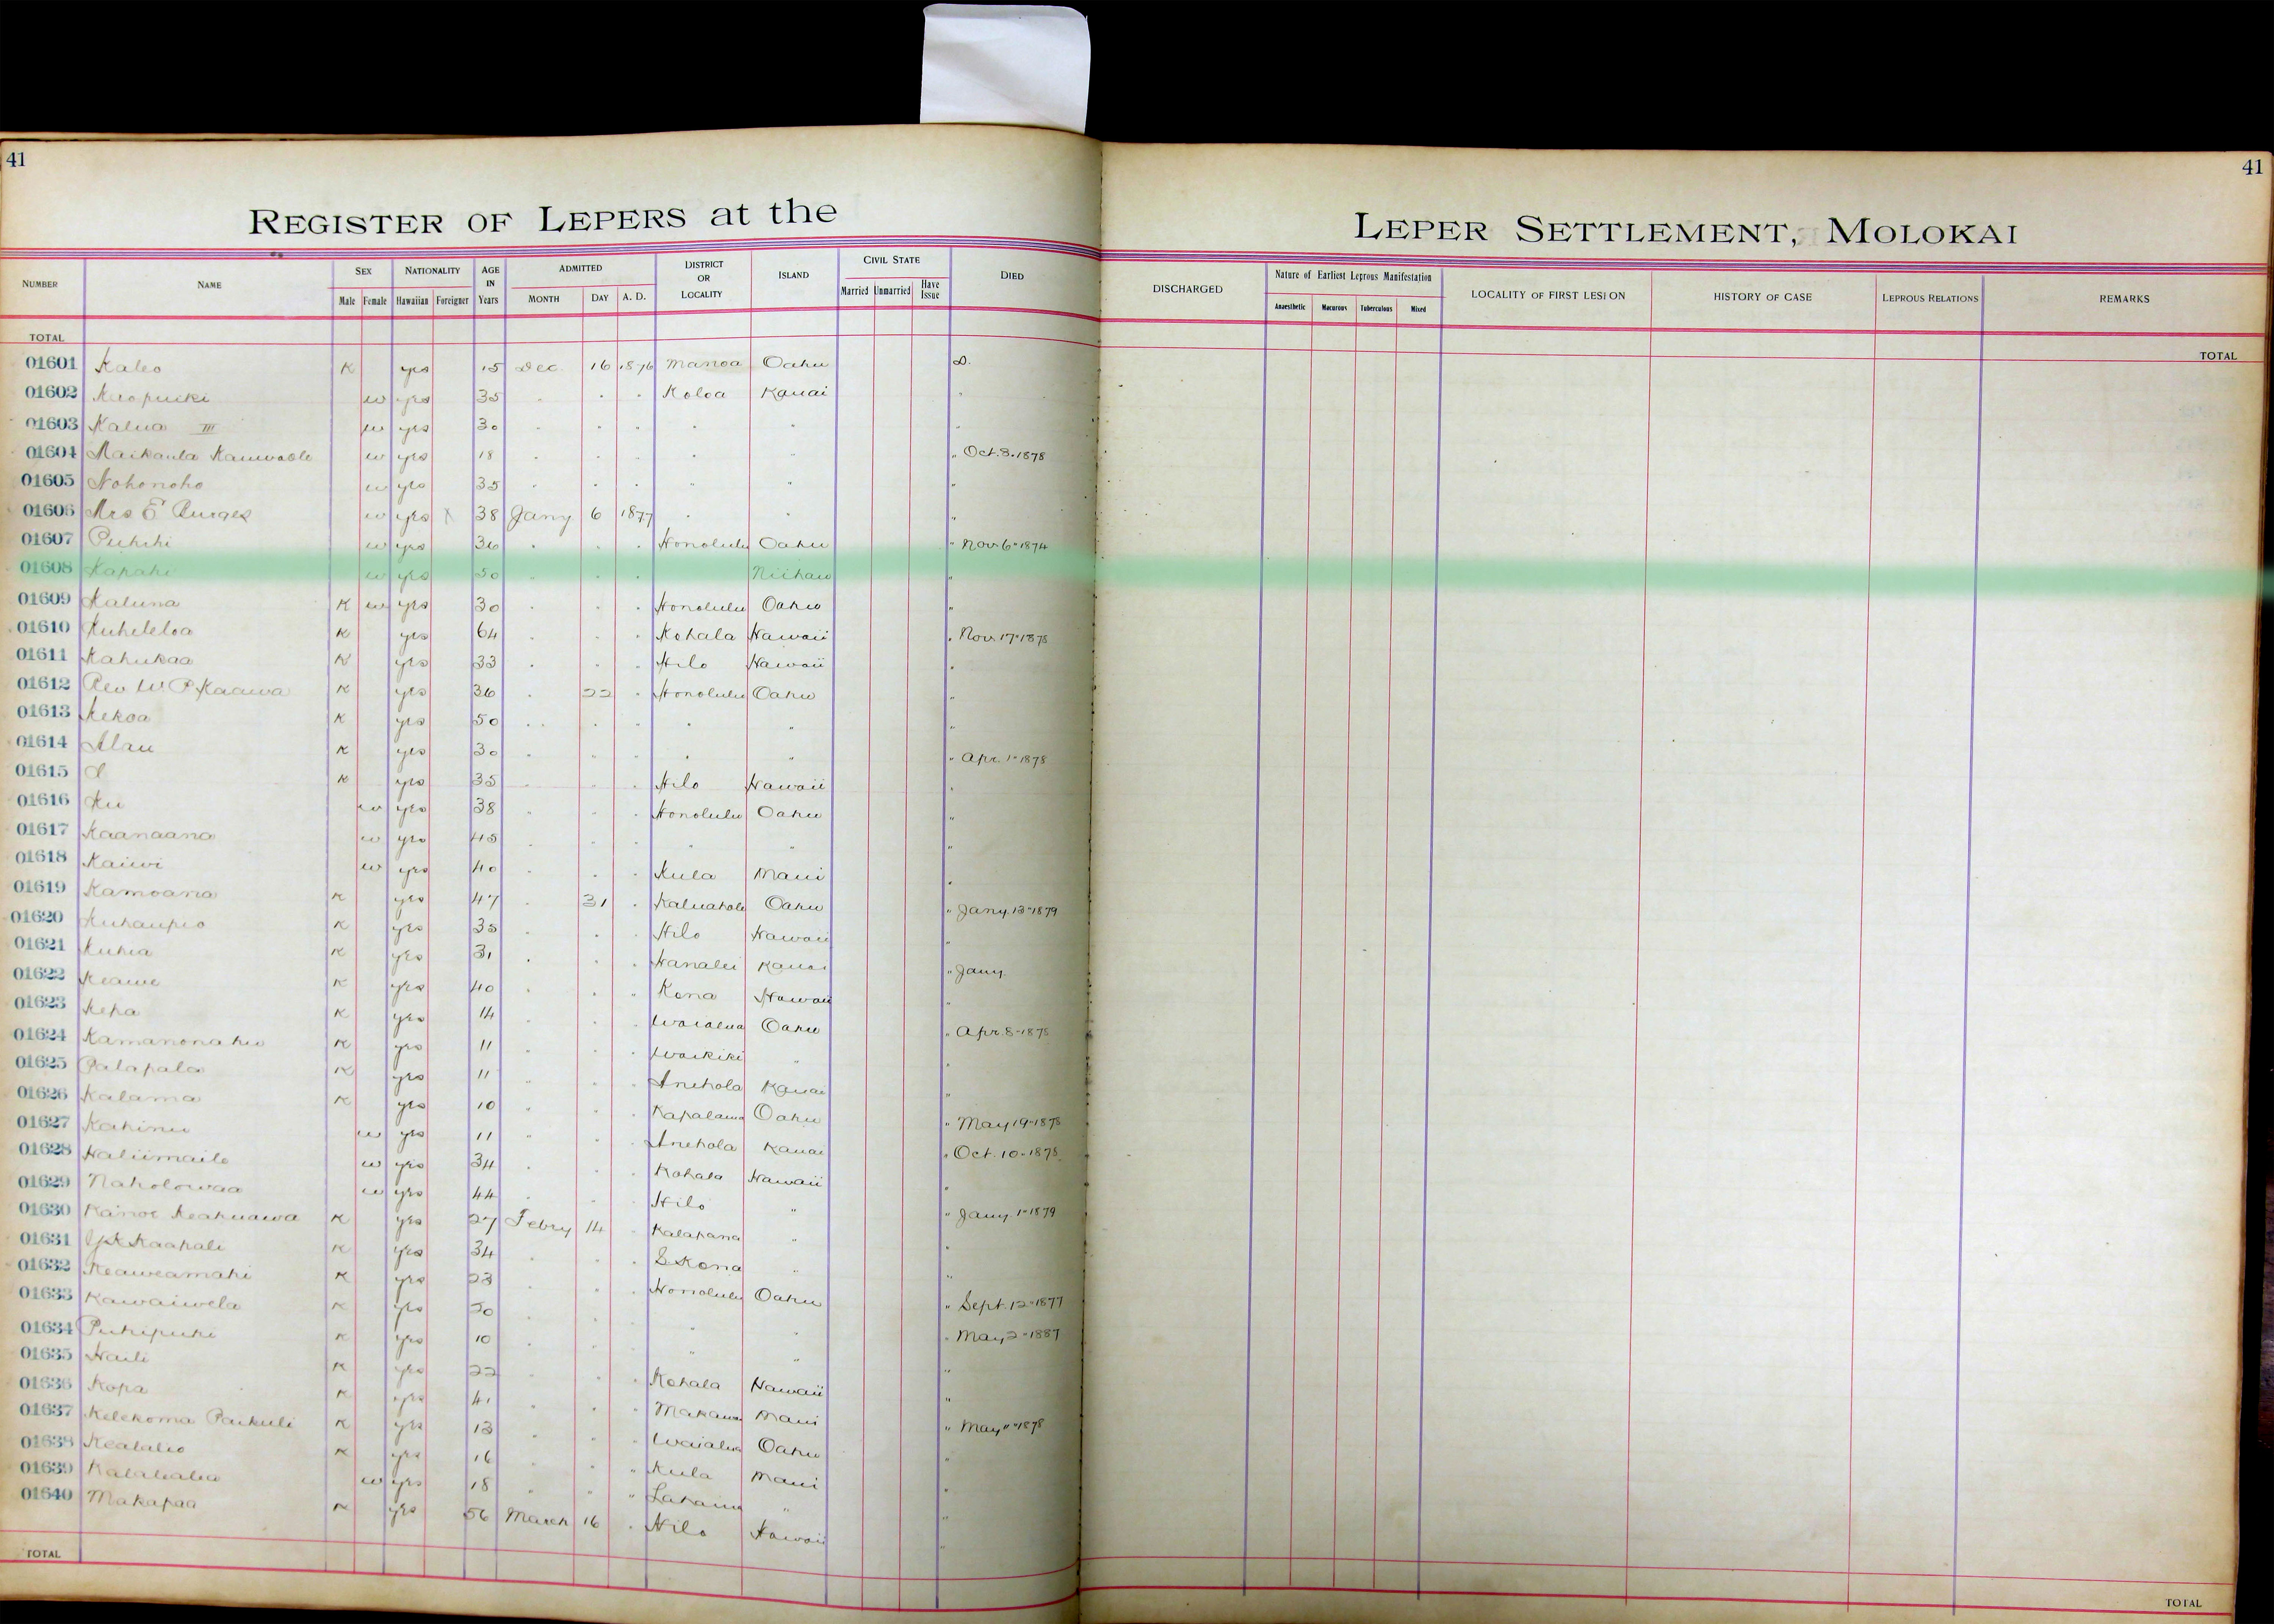 41
41
REGISTER OF LEPERS at the
LEPER SETTLEMENT, MOLOKAI
NUMBER NAME SEX Male Female NATIONALITY Hawaiian Foreigner AGE IN Years ADMITTED MONTH DAY A. D. DISTRICT OR LOCALITY ISLAND CIVIL STATE Married Unmarried Have Issue DIED
DISCHARGED Nature of Earliest Leprous Manifestation Anaesthetic Macurous Tuberculous Mixed LOCALITY OF FIRST LESION HISTORY OF CASE LEPROUS RELATIONS REMARKS
TOTAL
TOTAL
01601 Kaleo K yes 15 Dec. 16 1876 Manoa Oahu D.
01602 w yes 35 " " " Koloa Kauai "
01603 Kalua III w yes 30 " " " " " "
01604 w yes 18 " " " " " " Oct. 3. 1878
01605 Nohonoho w yes 35 " " " " " "
01606 Mrs E Burges w yes X 38 Jany 6 1877 " " "
01607 Puhihi w yes 36 " " " Honolulu Oahu " Nov. 6" 1874
01608 Kapahi w yes 50 " " " Niihau "
01609 Kaluna K w yes 30 " " " Honolulu Oahu "
01610 Kuheleloa K yes 64 " " " Kohala Hawaii " Nov. 17" 1878
01611 Kahukaa K yes 33 " " " Hilo Hawaii "
01612 Rev W. P. Kaawa K yes 36 " 22 " Honolulu Oahu "
01613 Kekoa K yes 50 " " " " " "
01614 Alau K yes 30 " " " " " " Apr. 1" 1878
01615 K yes 35 " " " Hilo Hawaii "
01616 Ku w yes 38 " " " Honolulu Oahu "
01617 Kaanaana w yes 45 " " " " " "
01618 Kaiwi w yes 40 " " " Kula Maui "
01619 Kamoana K yes 47 " 31 " Oahu " Jany. 13" 1879
01620 Kuhaupio K yes 35 " " " Hilo Hawaii "
01621 Kuhia K yes 31 " " " Hanalei Kauai " Jany.
01622 Keawe K yes 40 " " " Kona Hawaii "
01623 Kepa K yes 14 " " " Waialua Oahu " Apr. 8" 1878
01624 Kamanonahu K yes 11 " " " Waikiki " "
01625 Palapala K yes 11 " " " Anehola Kauai "
01626 Kalama K yes 10 " " " Kapalama Oahu " May 19" 1878
01627 Kahinu w yes 11 " " " Anehola Kauai " Oct. 10" 1878
01628 Haliimaile w yes 34 " " " Kohala Hawaii "
01629 Naholowaa w yes 44 " " " Hilo " " Jany. 1" 1879
01630 Kanoe Keahuawa K yes 27 Febry 14 " Kalapana " "
01631 Kaapali K yes 34 " " " S Kona " "
01632 Keaweamahi K yes 23 " " " Honolulu Oahu " Sept. 12" 1877
01633 Kawaiwela K yes 20 " " " " " " May 2" 1887
01634 Puhipuhi K yes 10 " " " " " "
01635 Haili K yes 22 " " " Kohala Hawaii "
01636 Kopa K yes 41 " " " Makawao Maui " May 11" 1878
01637 Kelekoma Paikuli K yes 13 " " " Waialua Oahu "
01638 Kealalio K yes 16 " " " Kula Maui "
01639 w yes 18 " " " Lahaina " "
01640 Makapaa K yes 56 March 16 " Hilo Hawaii "
TOTAL
TOTAL